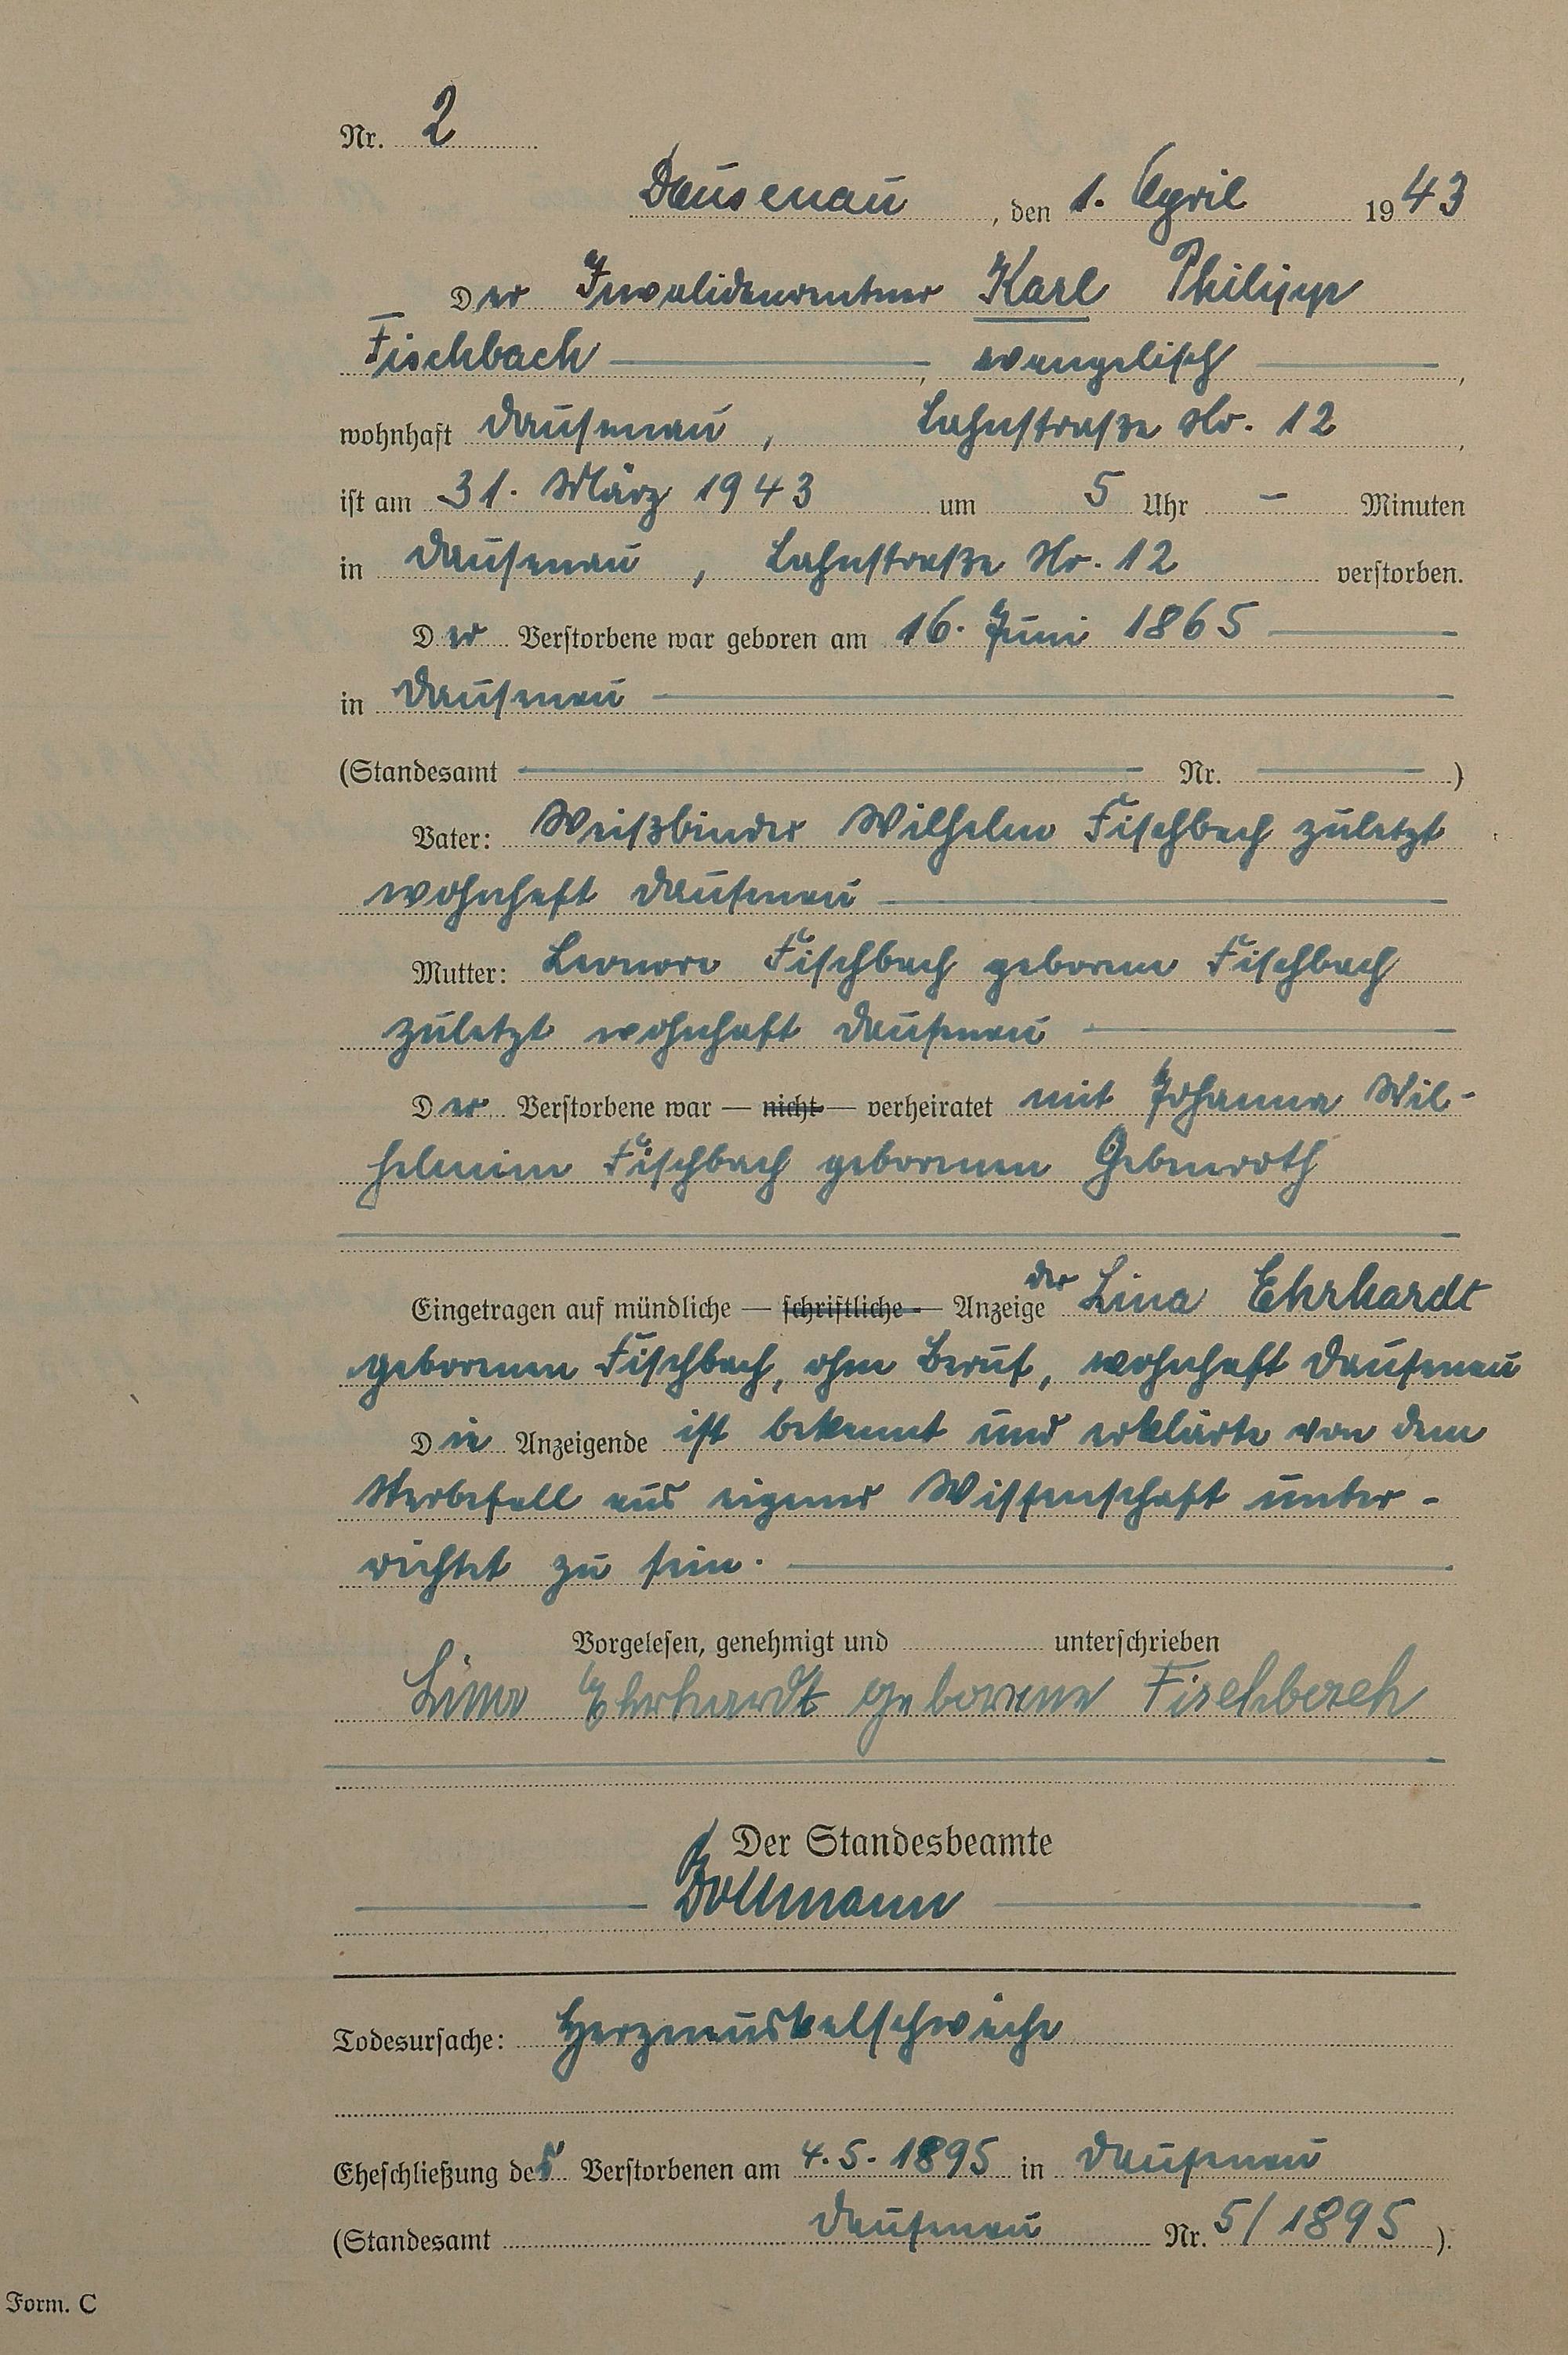 Nr. 2
Dausenau, den 1. April 1943
Der Invalidenrentner Karl Philipp
Fischbach, evangelisch,
wohnhaft Dausenau, Lahnstraße Nr. 12,
ist am 31. März 1943 um 5 Uhr – Minuten
in Dausenau, Lahnstraße Nr. 12 verstorben.
Der Verstorbene war geboren am 16. Juni 1865
in Dausenau
(Standesamt — Nr. — )
Vater: Weißbinder Wilhelm Fischbach zuletzt
wohnhaft Dausenau
Mutter: Leonore Fischbach geborene Fischbach
zuletzt wohnhaft Dausenau
Der Verstorbene war — nicht — verheiratet mit Johanna Wil-
helmine Fischbach geborenen Gebenroth
Eingetragen auf mündliche — schriftliche — Anzeige der Lina Ehrhardt
geborenen Fischbach, ohne Beruf, wohnhaft Dausenau
Die Anzeigende ist bekannt und erklärte von dem
Sterbefall aus eigener Wissenschaft unter-
richtet zu sein.
Vorgelesen, genehmigt und unterschrieben
Lina Ehrhardt geborene Fischbach
Der Standesbeamte
Bollmann
Todesursache: Herzmuskelschwäche
Eheschließung des Verstorbenen am 4.5.1895 in Dausenau
(Standesamt Dausenau Nr. 5/1895 ).
Form. C